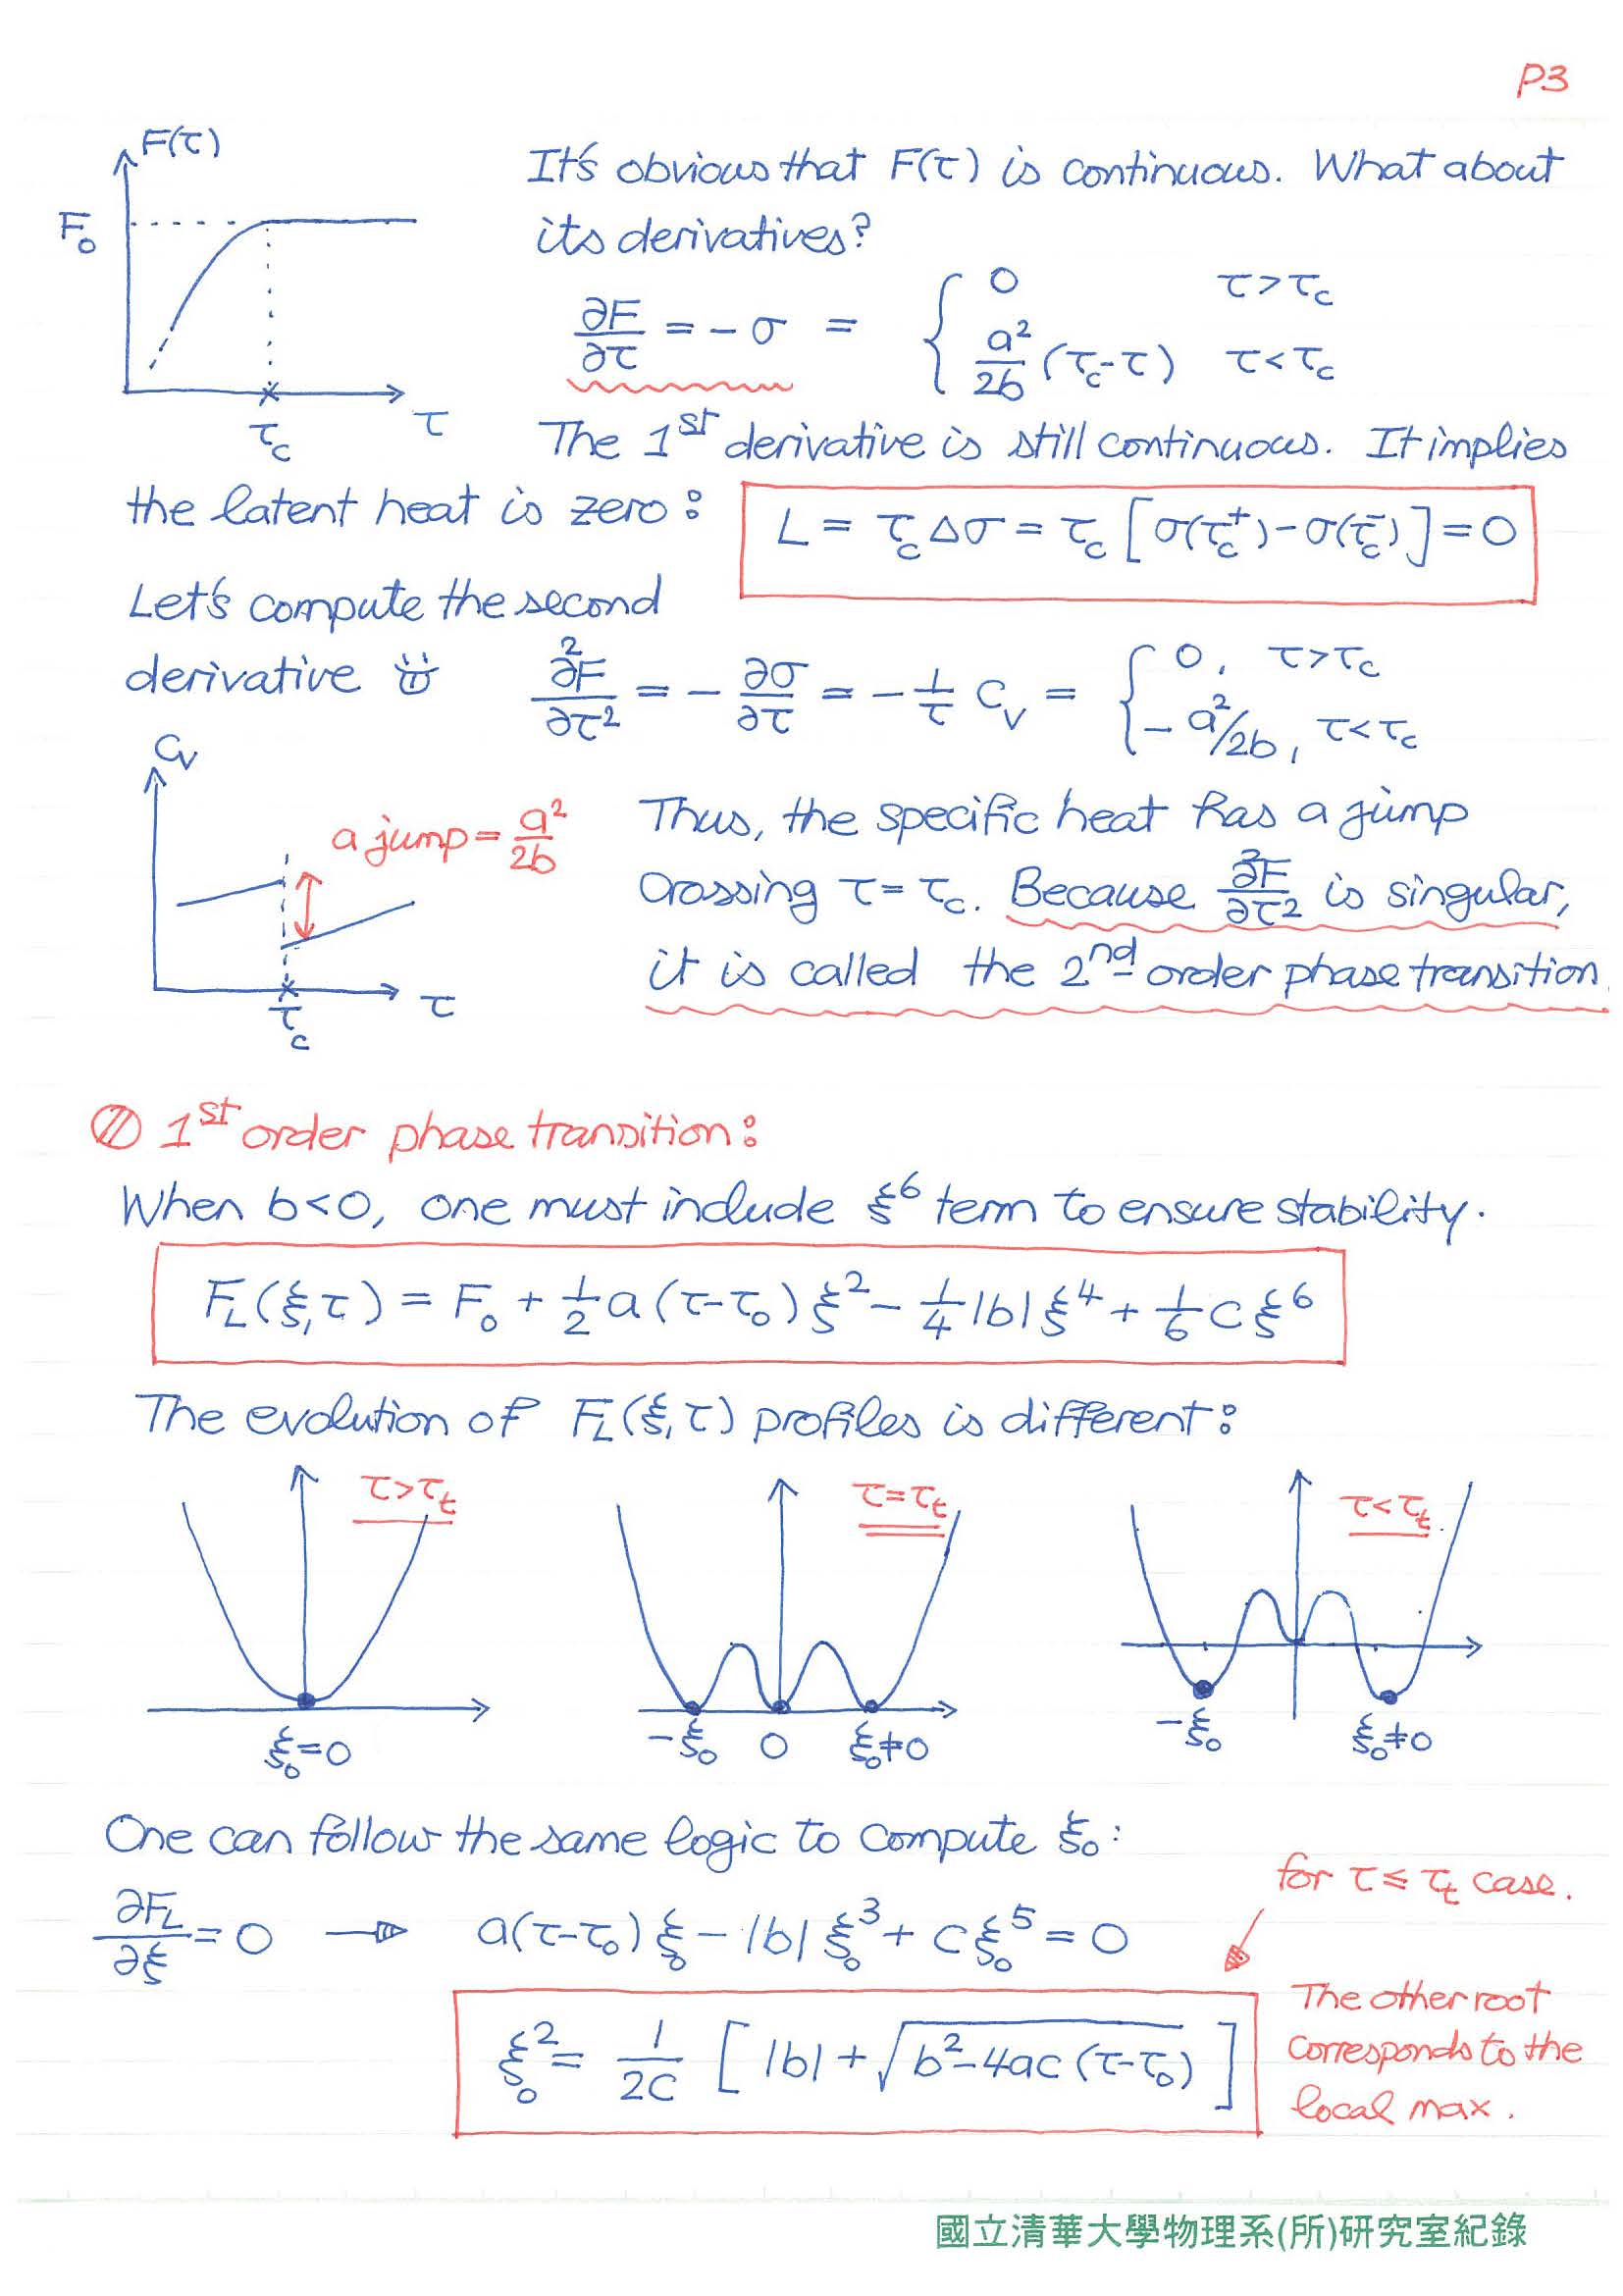 P3
F(τ)
F₀
τ_c
τ
It's obvious that F(τ) is continuous. What about
its derivatives?
∂F/∂τ = -σ = { 0 τ>τ_c
a²/2b (τ_c-τ) τ<τ_c
The 1st derivative is still continuous. It implies
the latent heat is zero: L = τ_c Δσ = τ_c [σ(τ_c⁺)-σ(τ_c⁻)] = 0
Let's compute the second
derivative ∂²F/∂τ² = - ∂σ/∂τ = - 1/τ C_V = { 0, τ>τ_c
- a²/2b, τ<τ_c
C_V
a jump = a²/2b
τ_c
τ
Thus, the specific heat has a jump
crossing τ=τ_c. Because ∂²F/∂τ² is singular,
it is called the 2nd order phase transition.
1st order phase transition:
When b<0, one must include ξ⁶ term to ensure stability.
F_L(ξ,τ) = F₀ + 1/2 a(τ-τ₀)ξ² - 1/4 |b|ξ⁴ + 1/6 cξ⁶
The evolution of F_L(ξ,τ) profiles is different:
τ>τ_t
ξ₀=0
τ=τ_t
-ξ₀ 0 ξ₀≠0
τ<τ_t
-ξ₀ ξ₀≠0
One can follow the same logic to compute ξ₀:
for τ≤τ_t case.
∂F_L/∂ξ = 0 → a(τ-τ₀)ξ₀ - |b|ξ₀³ + cξ₀⁵ = 0
ξ₀² = 1/2c [|b| + √(b²-4ac(τ-τ₀))]
The other root
corresponds to the
local max.
國立清華大學物理系(所)研究室紀錄